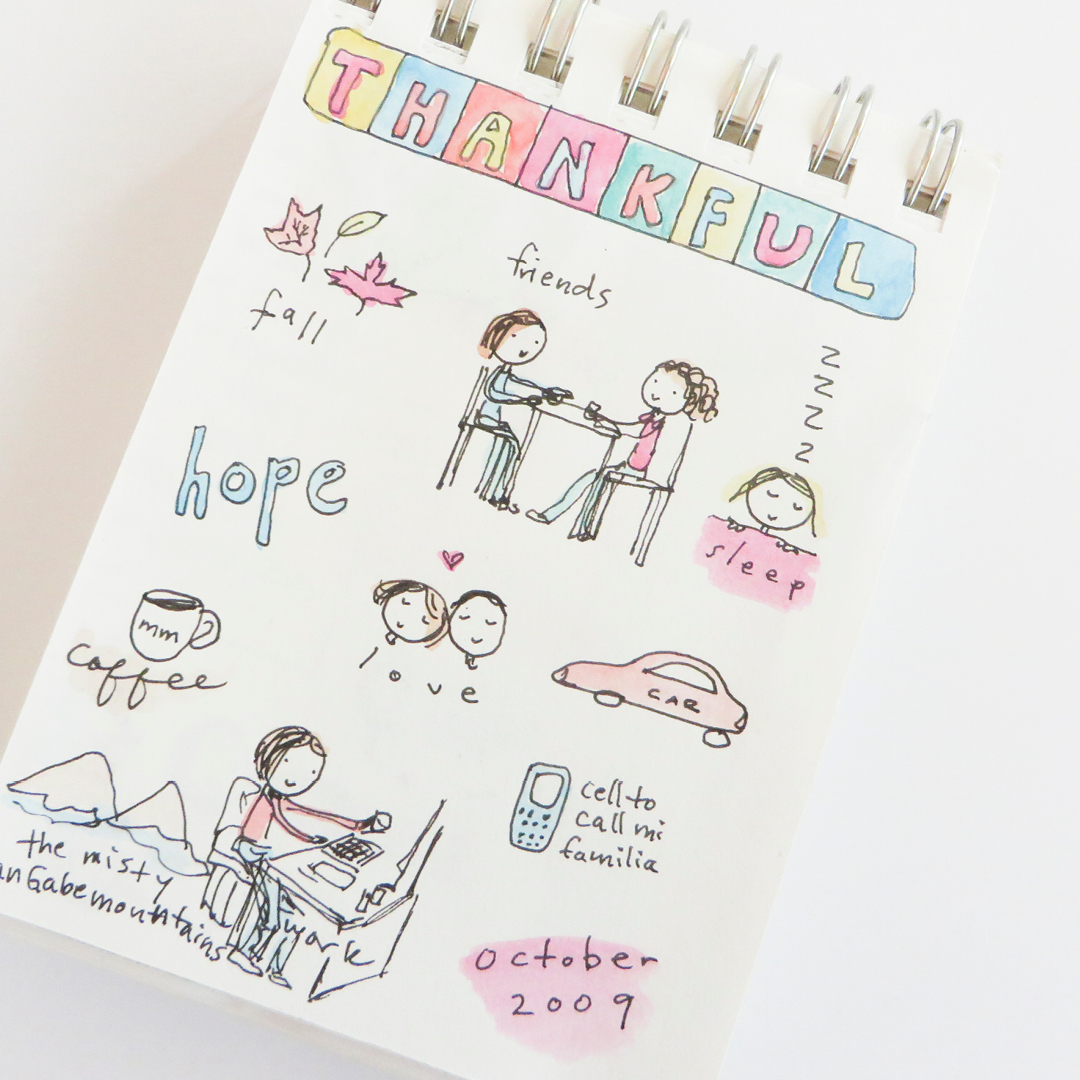 THANKFUL
fall
friends
z
z
z
z
hope
sleep
mm
coffee
love
CAR
cell to
call mi
familia
the misty
mountains
work
october
2009